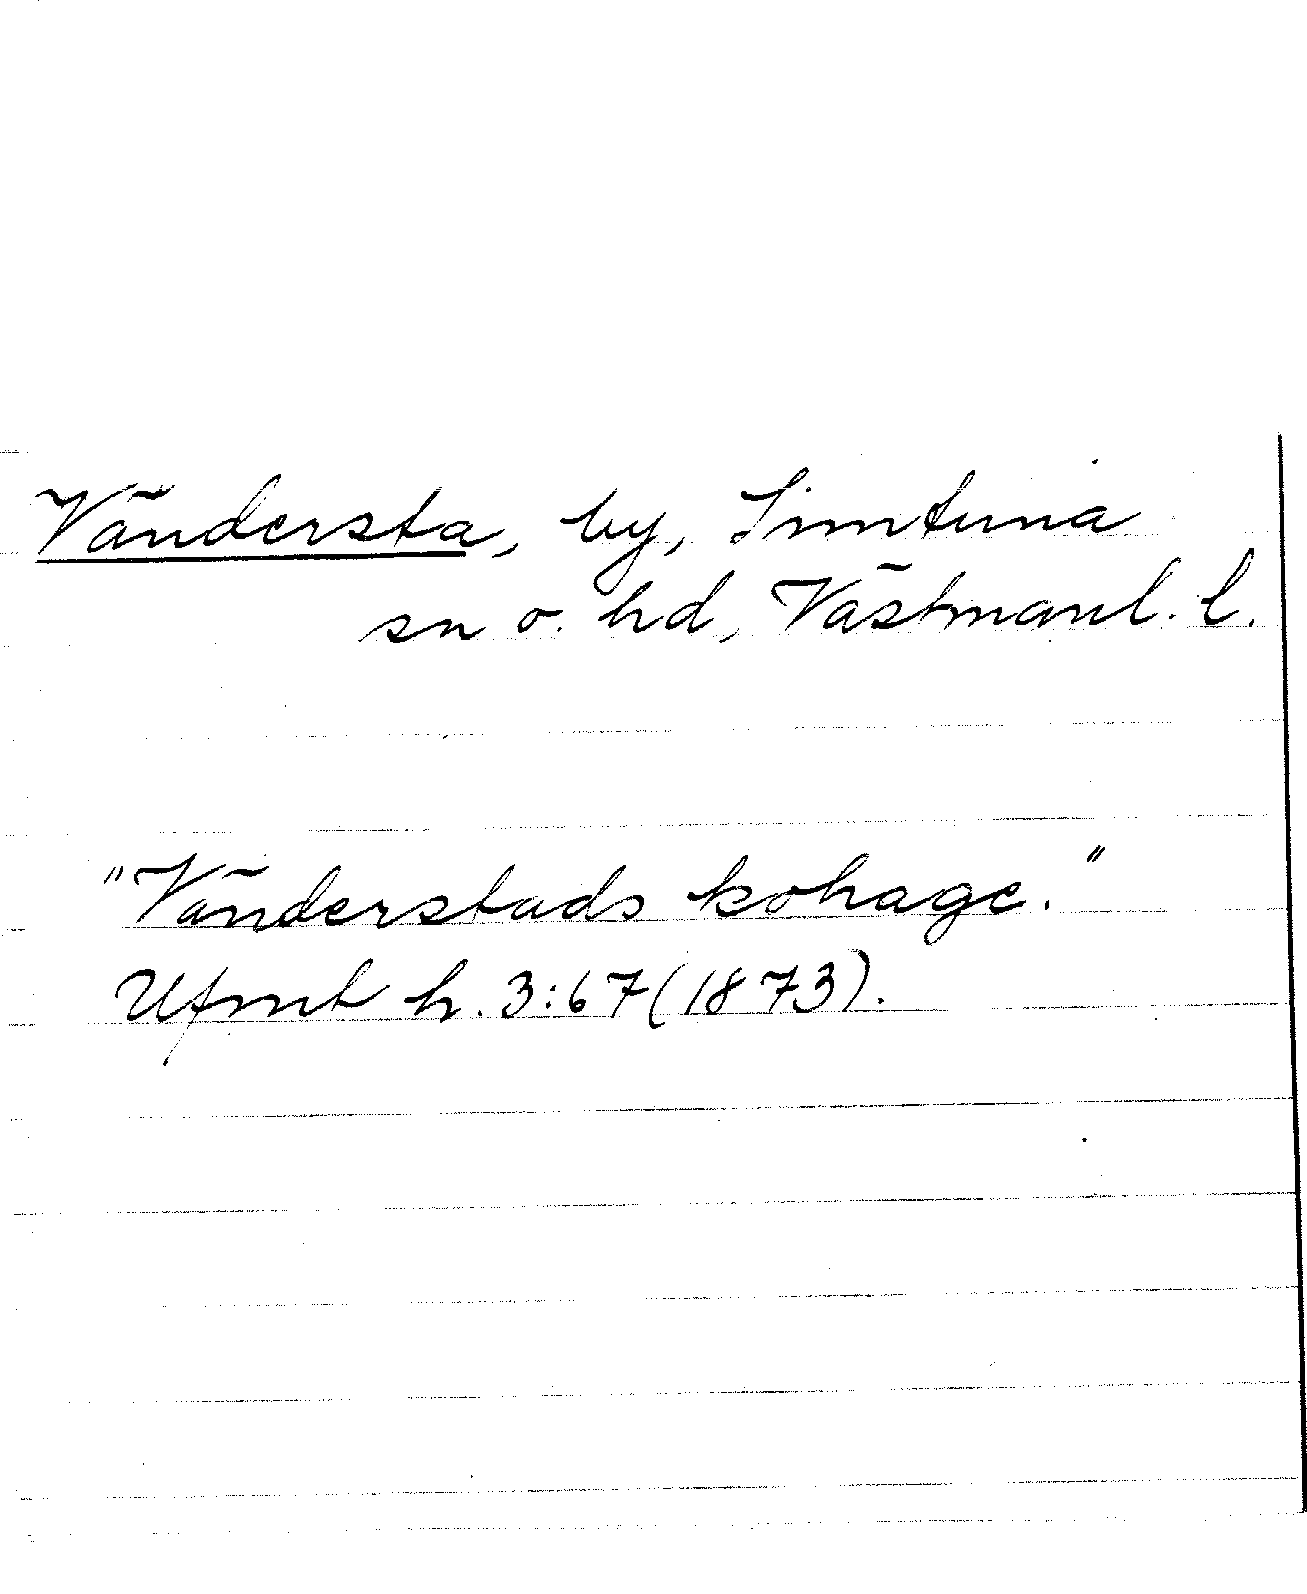 Vändersta, by, Simtuna
sn o. hd, Västmanl. l.
"Vänderstads kohage."
Ufmt h. 3:67(1873).